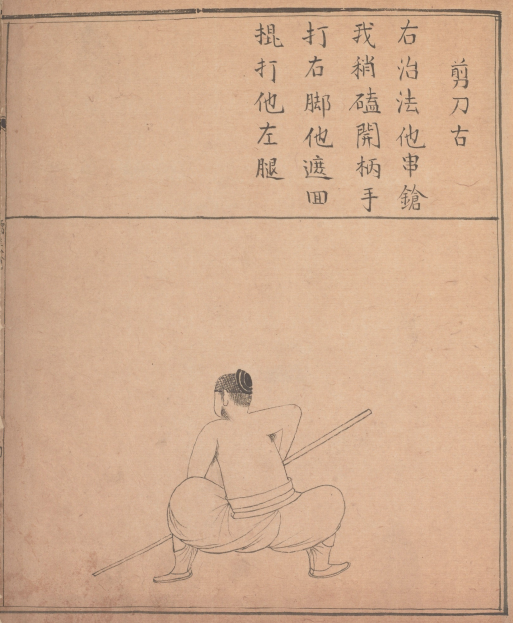 剪刀古
右治法他串鎗
我稍磕開柄手
打右脚他遮囬
掍打他左腿